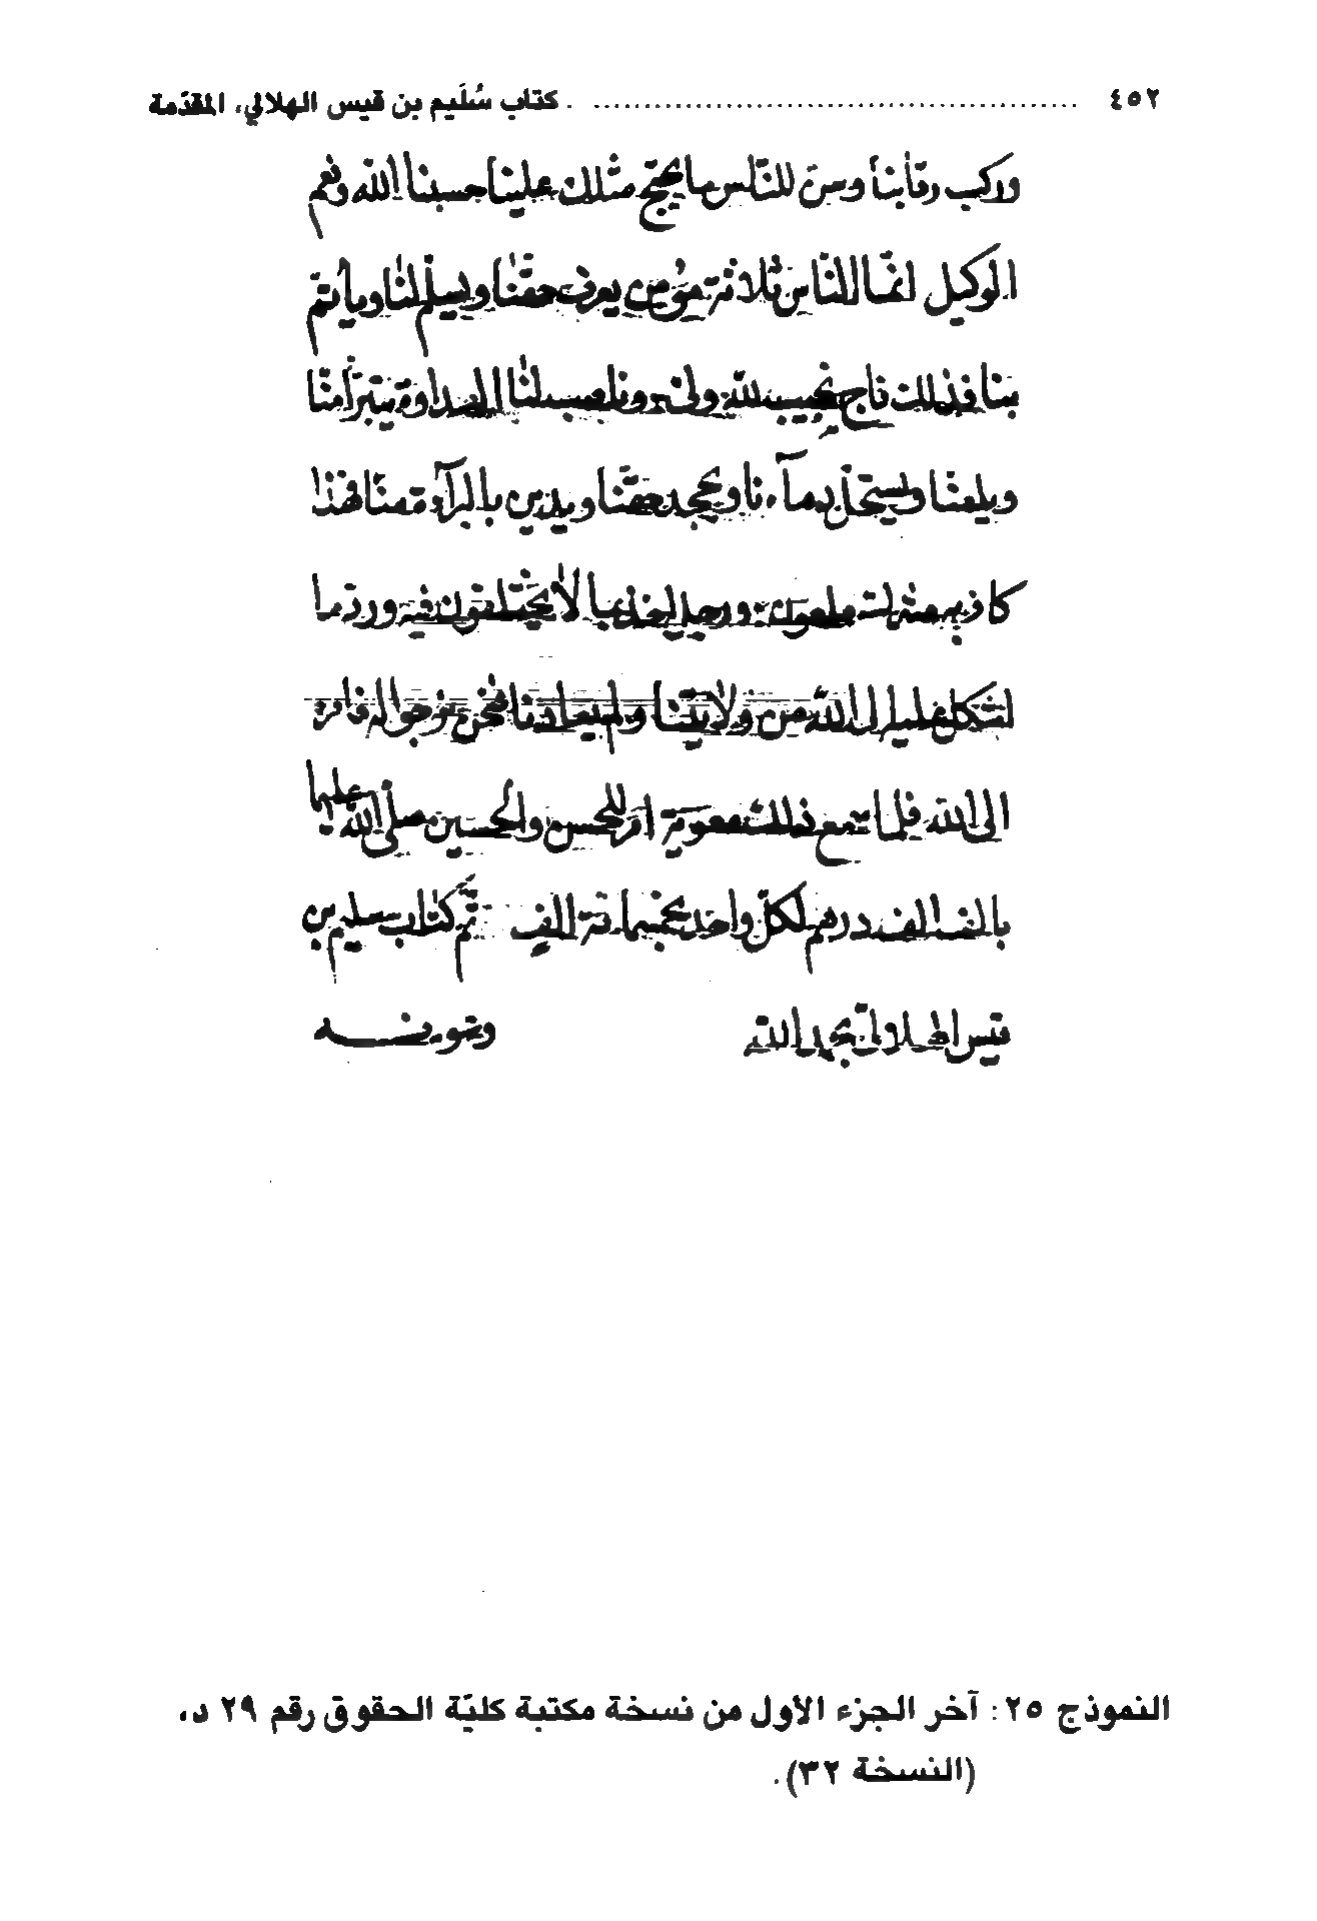 ٤٥٢ ................ كتاب سُلَيم بن قيس الهلالي، المقدّمة
وركب رقابنا وسن للناس ما يحتج مثلك علينا حسبنا الله ونعم
الوكيل انما الناس ثلاثة مؤمن يعرف حقنا ويسلم لنا ويأتم
بنا فذلك ناج نجيب لله ولى وناصب لنا العداوة يتبرأ منا
ويلعنا ويستحل دمآءنا ويجحد حقنا ويدين بالبرآءة منا فهذا
كافر به مشرك ملعون ورجل اخذ بما لا يختلفون فيه ورد ما
اشكل عليه الى الله من ولايتنا ولم يعادنا فنحن نرجوا له فامره
الى الله فلما سمع ذلك معوية امر للحسن والحسين صلى الله عليهما
بالف الف درهم لكل واحد بخمسمائة الف تم كتاب سليم بن
قيس الهلالى بحمد الله وعونه
النموذج ٢٥: آخر الجزء الأول من نسخة مكتبة كليّة الحقوق رقم ٢٩ د،
(النسخة ٣٢).